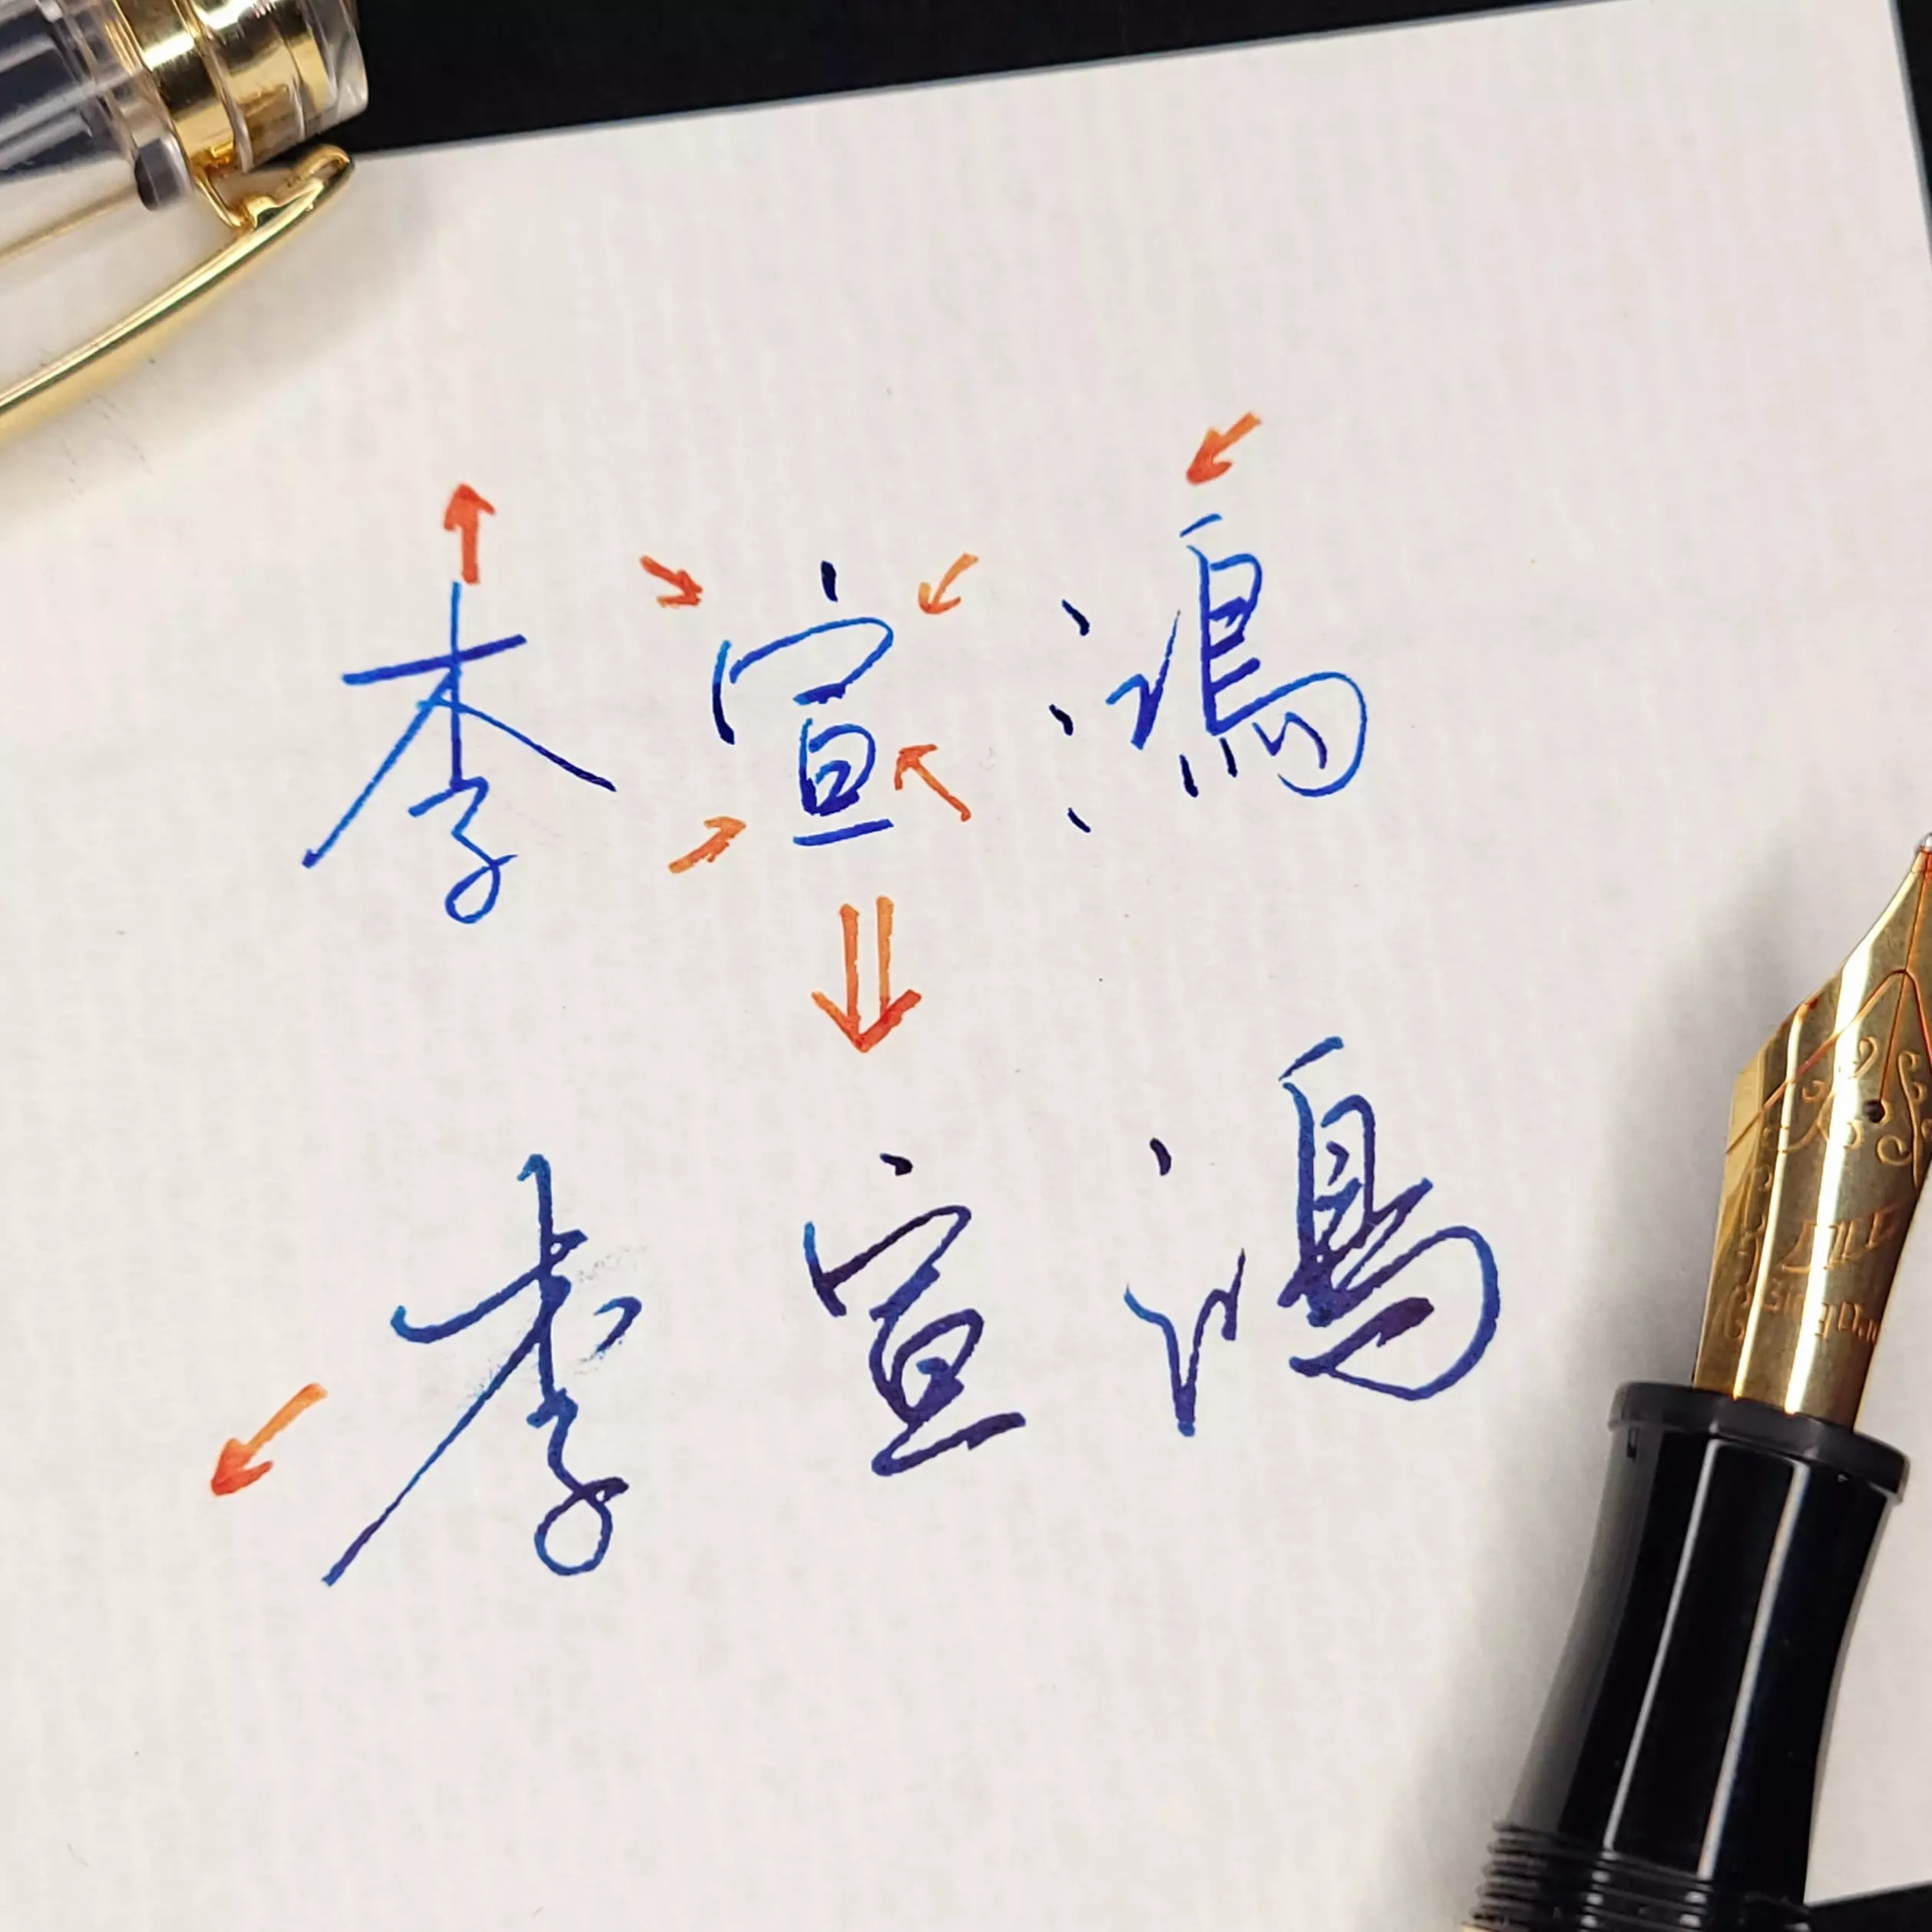 李宣鴻
李宣鴻